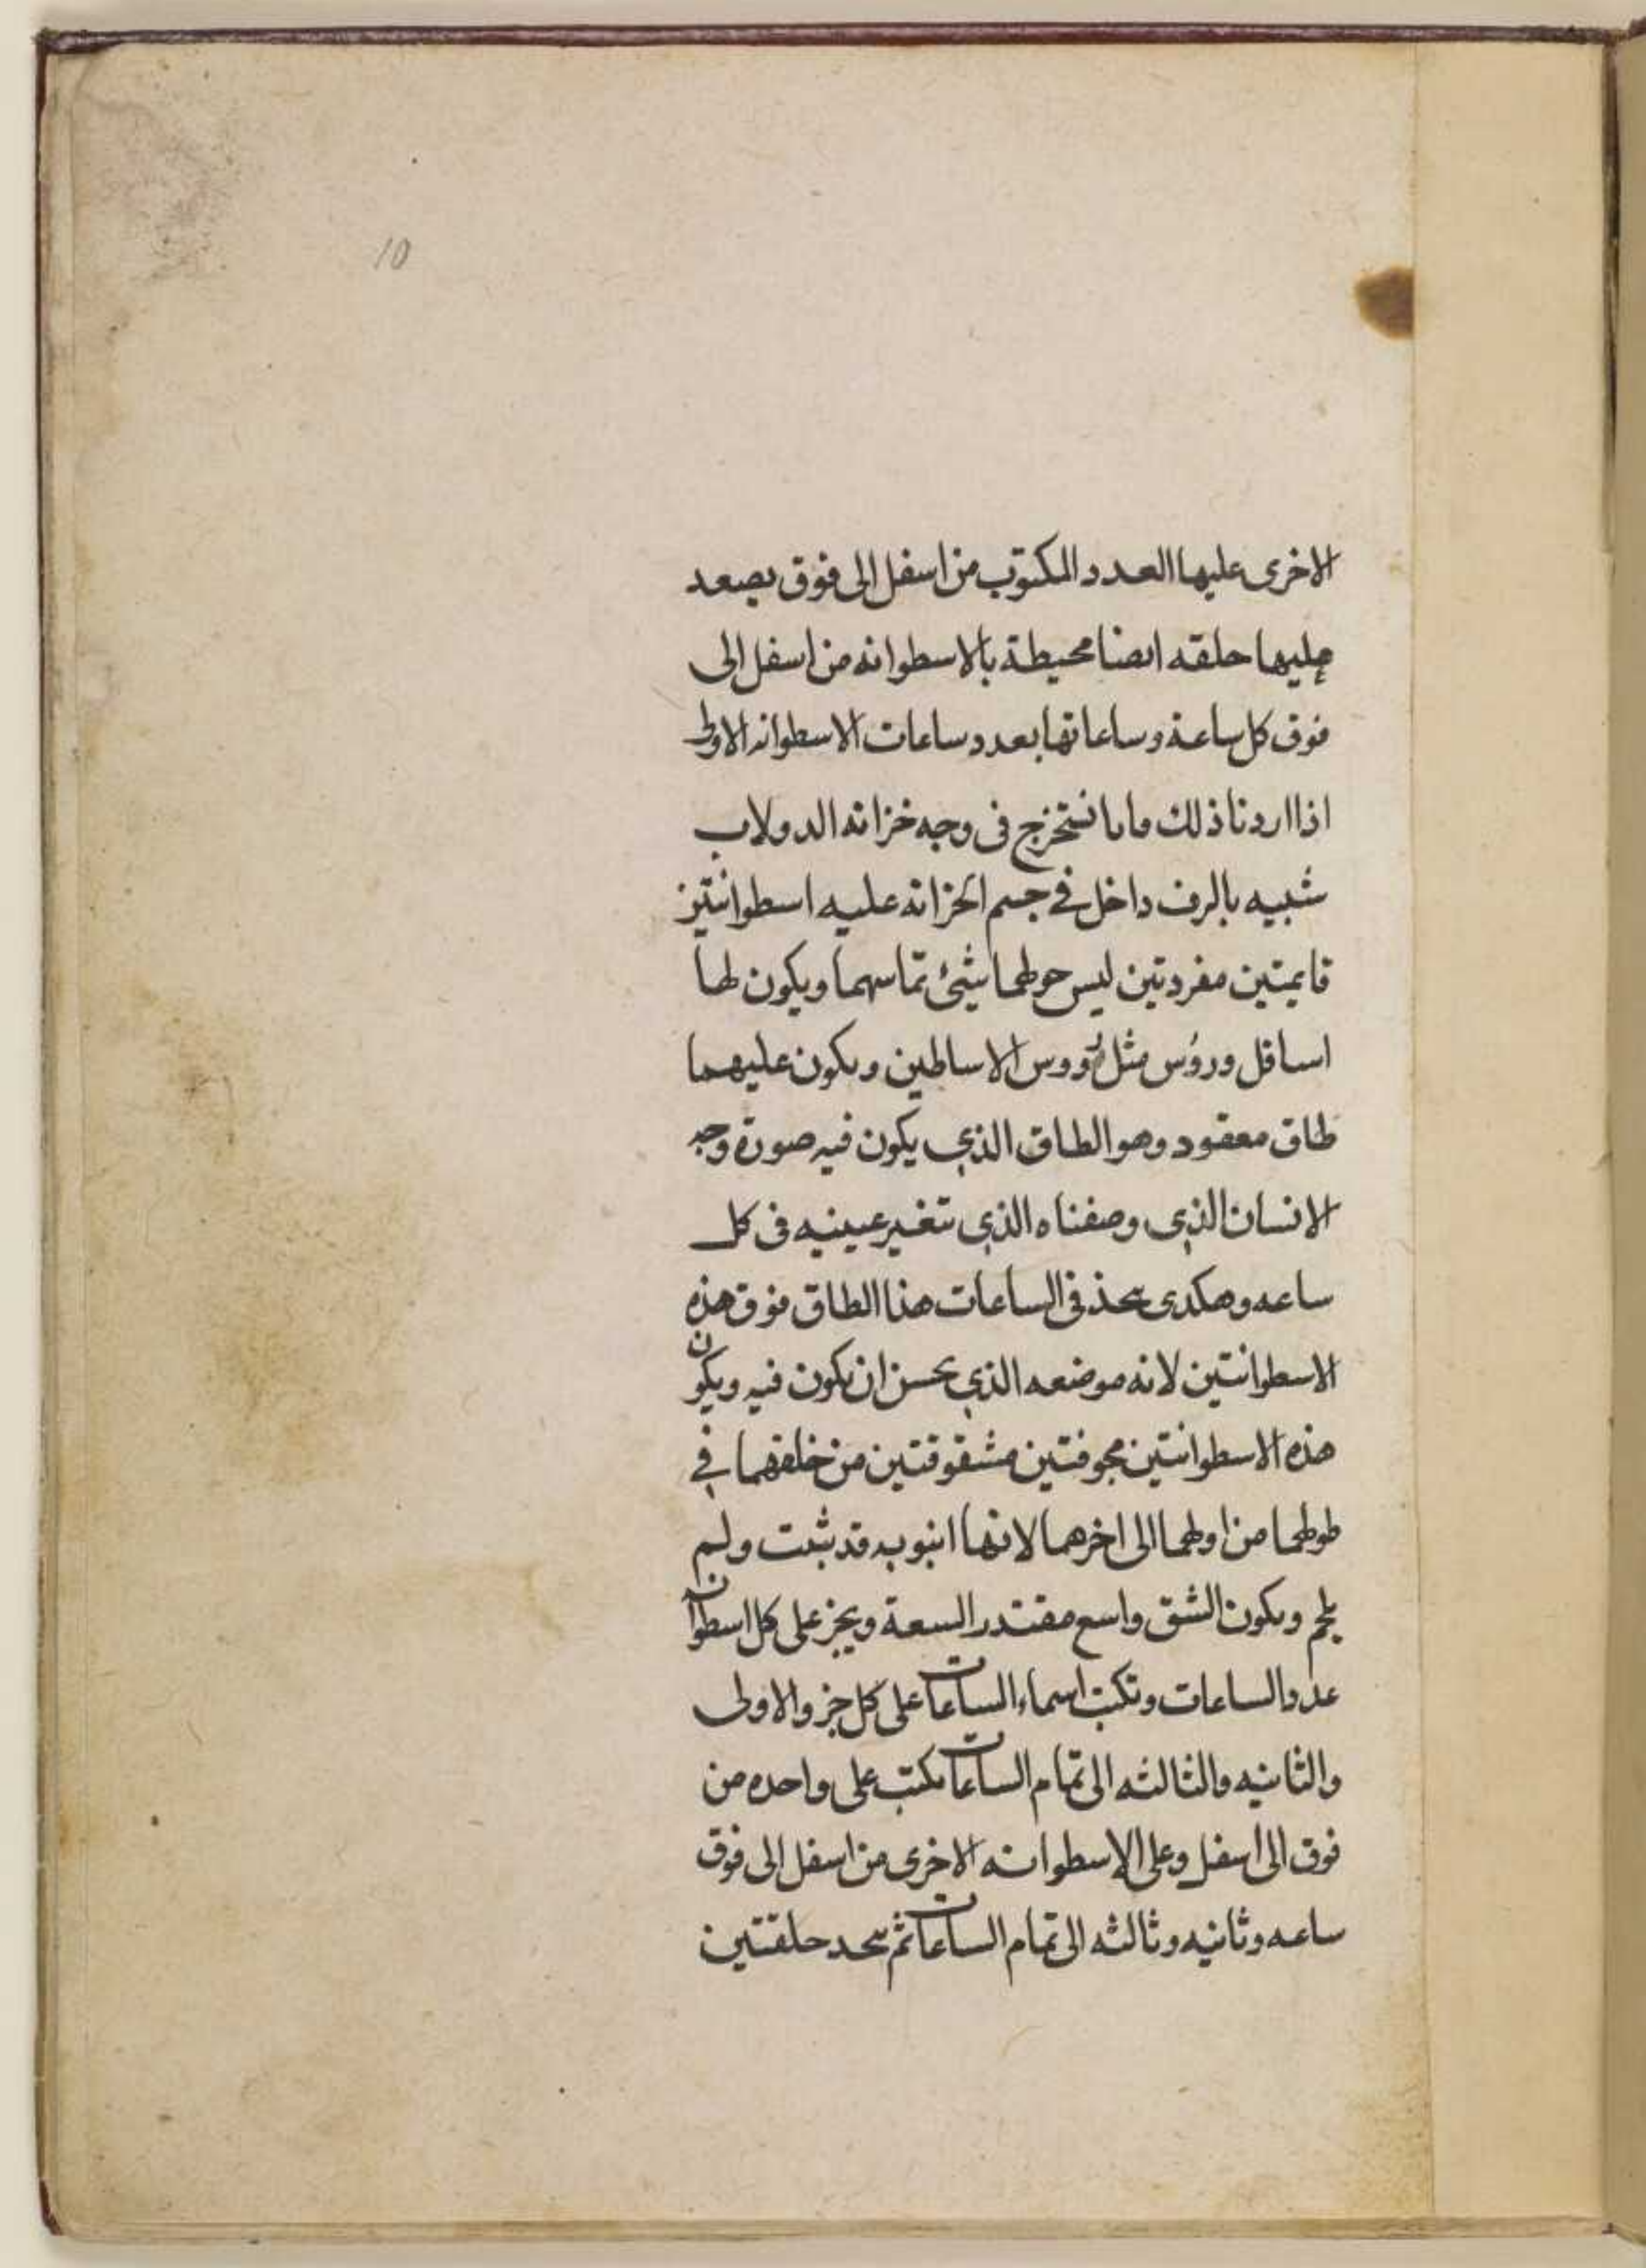 10
الاخرى عليها العدد المكتوب من اسفل الى فوق يصعد
عليها حلقه ايضا محيطة بالاسطوانه من اسفل الى
فوق كل ساعة وساعاتها بعدد ساعات الاسطوانه الاولى
اذا اردنا ذلك فاننا نستخرج فى وجه خزانه الدولاب
شبيه بالرف داخل في جسم الخزانه عليه اسطوانتين
قايمتين مفردتين ليس حولهما شيئ تماسهما ويكون لهما
اسافل وروس مثل رووس الاساطين ويكون عليهما
طاق معقود وهو الطاق الذي يكون فيه صورة وجه
الانسان الذي وصفناه الذي تتغير عينيه فى كل
ساعه وهكدى يتخذ في الساعات هذا الطاق فوق هذه
الاسطوانتين لانه موضعه الذي يحسن ان يكون فيه ويكون
هذه الاسطوانتين مجوفتين مشقوقتين من خلفهما في
طولهما من اولهما الى اخرهما لانها انبوب قد ثبت ولم
يلحم ويكون الشق واسع مقتدر السعة ويجز على كل اسطوان
عدد الساعات وتكتب اسماء الساعات على كل جز والاولى
والثانيه والثالثه الى تمام الساعات يكتب على واحده من
فوق الى اسفل وعلى الاسطوانه الاخرى من اسفل الى فوق
ساعه وثانيه وثالثه الى تمام الساعات ثم يتخد حلقتين